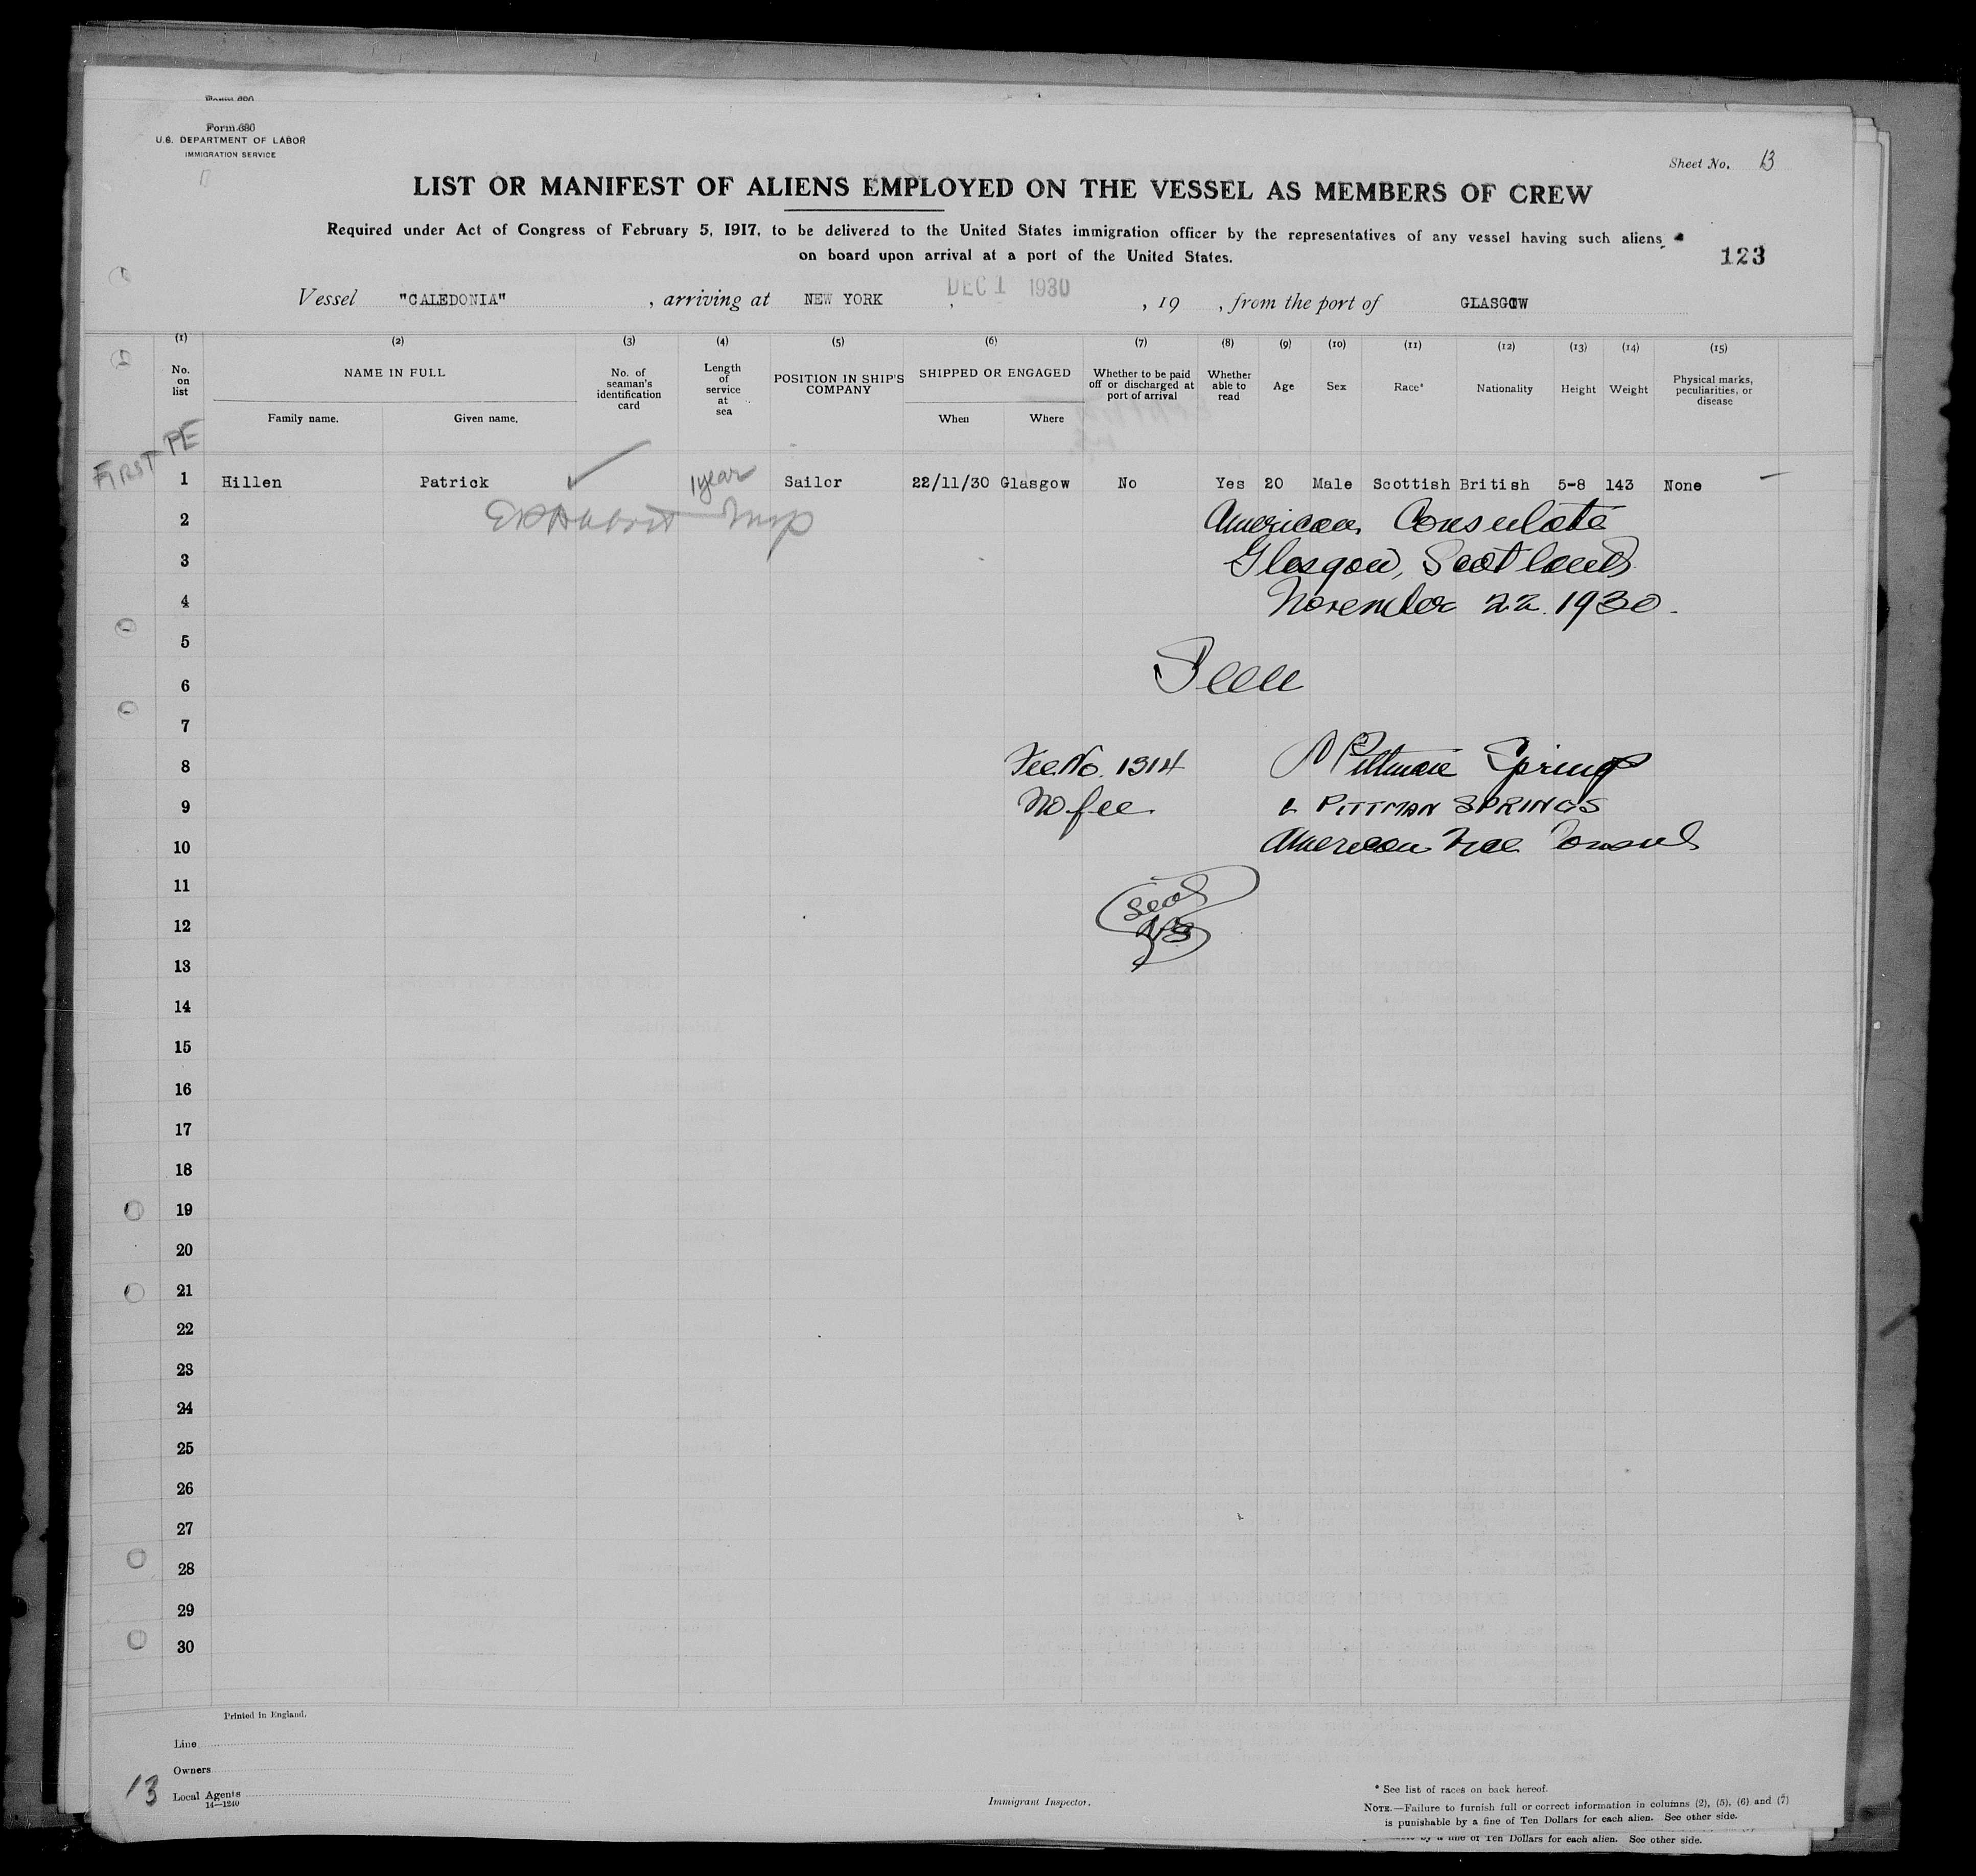 Form 680
U.S. DEPARTMENT OF LABOR
IMMIGRATION SERVICE
Sheet No. 13
LIST OR MANIFEST OF ALIENS EMPLOYED ON THE VESSEL AS MEMBERS OF CREW
Required under Act of Congress of February 5, 1917, to be delivered to the United States immigration officer by the representatives of any vessel having such aliens
on board upon arrival at a port of the United States.
123
Vessel "CALEDONIA" , arriving at NEW YORK , DEC 1 1930 , 19 , from the port of GLASGOW
(1) (2) (3) (4) (5) (6) (7) (8) (9) (10) (11) (12) (13) (14) (15)
No. on list
NAME IN FULL
Family name. Given name.
No. of seaman's identification card
Length of service at sea
POSITION IN SHIP'S COMPANY
SHIPPED OR ENGAGED
When Where
Whether to be paid off or discharged at port of arrival
Whether able to read
Age
Sex
Race*
Nationality
Height
Weight
Physical marks, peculiarities, or disease
FIRST PE
1 Hillen Patrick ✓ 1 year Sailor 22/11/30 Glasgow No Yes 20 Male Scottish British 5-8 143 None —
2 American Consulate
3 Glasgow, Scotland
4 November 22. 1930.
5
6 Seen
7
8 Fee No. 1314 Pittman Springs
9 No fee L PITTMAN SPRINGS
10 American Vice Consul
11 Seal
12
13
14
15
16
17
18
19
20
21
22
23
24
25
26
27
28
29
30
Printed in England.
Line
Owners
Local Agents
14—1240
13
Immigrant Inspector.
* See list of races on back hereof.
NOTE.—Failure to furnish full or correct information in columns (2), (5), (6) and (7)
is punishable by a fine of Ten Dollars for each alien. See other side.
by a fine of Ten Dollars for each alien. See other side.